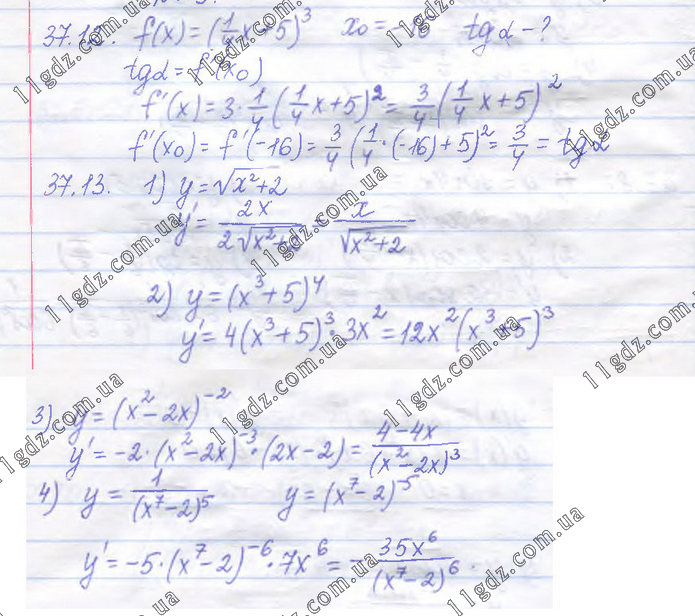 37.12. f(x) = (1/4 x + 5)^3 x₀ = -16 tgα - ?
tgα = f'(x₀)
f'(x) = 3 · 1/4 (1/4 x + 5)^2 = 3/4 (1/4 x + 5)^2
f'(x₀) = f'(-16) = 3/4 (1/4 · (-16) + 5)^2 = 3/4 = tgα
37.13. 1) y = √(x²+2)
y' = 2x / (2√(x²+2)) = x / √(x²+2)
2) y = (x³+5)^4
y' = 4(x³+5)³ · 3x² = 12x²(x³+5)³
3) y = (x²-2x)^-2
y' = -2 · (x²-2x)^-3 · (2x-2) = (4-4x) / (x²-2x)³
4) y = 1 / (x⁷-2)⁵ y = (x⁷-2)^-5
y' = -5 · (x⁷-2)^-6 · 7x⁶ = - 35x⁶ / (x⁷-2)⁶ .
11gdz.com.ua